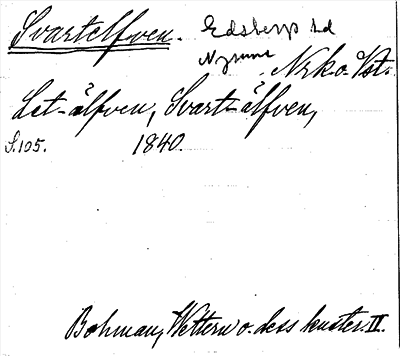 Svartelfven. Edsbergs hd
Nysund
Nrk o. Vst.
Let-älfven, Svart-älfven,
S.105. 1840.
Bohman, Wettern o. dess kuster. II.